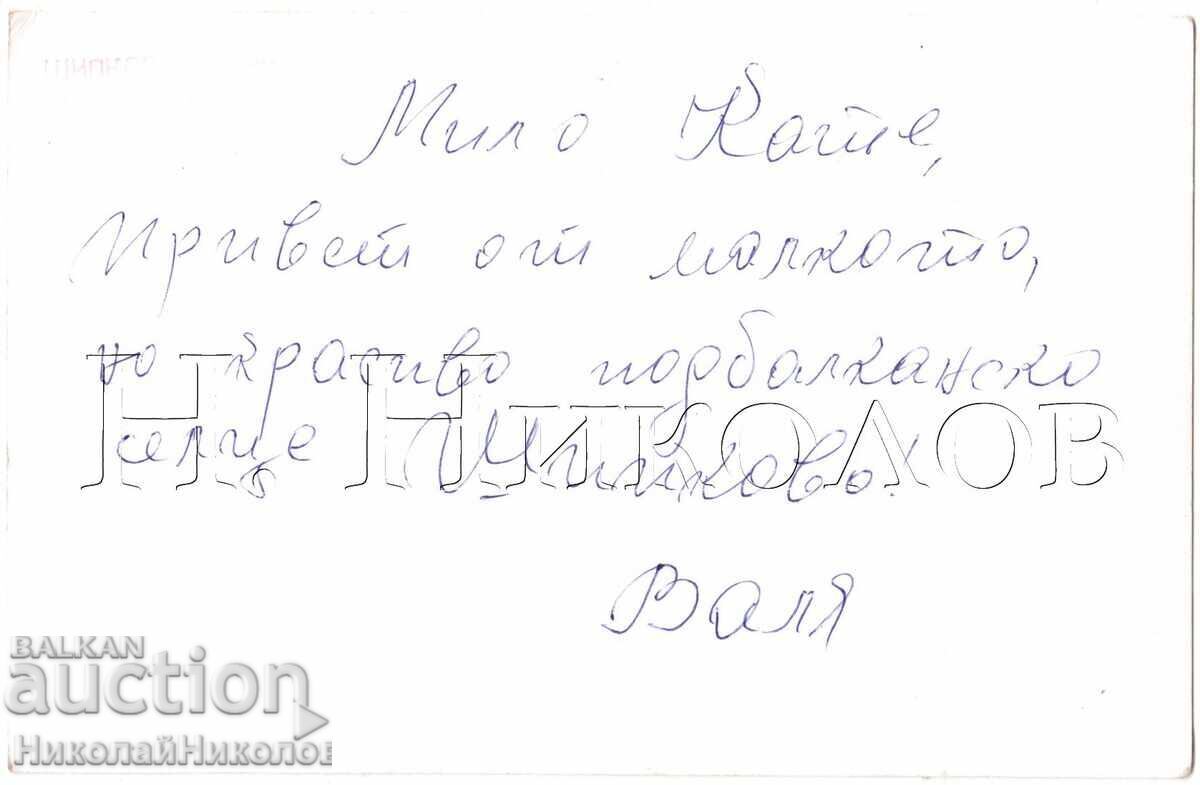 Мило Кате,
Привет от малкото,
но красиво подбалканско
селце Шипково!
Н. Николов
Валя
BALKAN
auction
НиколайНиколов